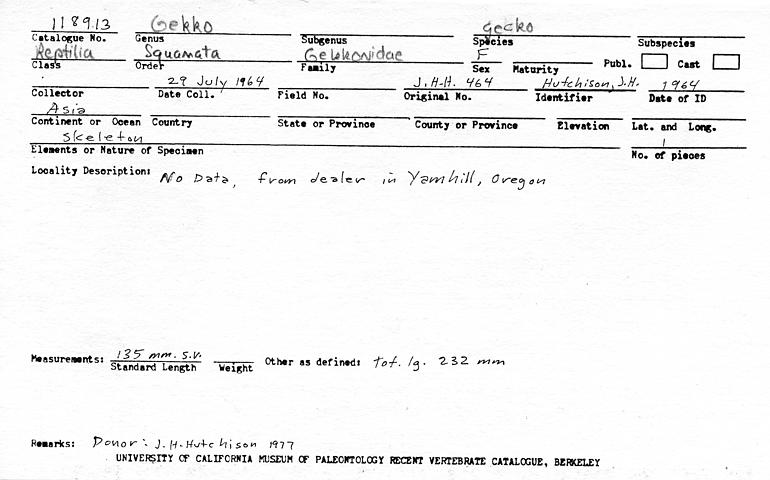 118913 Gekko gecko
Catalogue No. Genus Subgenus Species Subspecies
Reptilia Squamata Gekkonidae F
Class Order Family Sex Maturity Publ. Cast
29 July 1964 J.H.H. 464 Hutchison, J.H. 1964
Collector Date Coll. Field No. Original No. Identifier Date of ID
Asia
Continent or Ocean Country State or Province County or Province Elevation Lat. and Long.
Skeleton 1
Elements or Nature of Specimen No. of pieces
Locality Description: No Data, from dealer in Yamhill, Oregon
Measurements: 135 mm. s.v. Other as defined: tot. lg. 232 mm
Standard Length Weight
Remarks: Donor: J.H. Hutchison 1977
UNIVERSITY OF CALIFORNIA MUSEUM OF PALEONTOLOGY RECENT VERTEBRATE CATALOGUE, BERKELEY